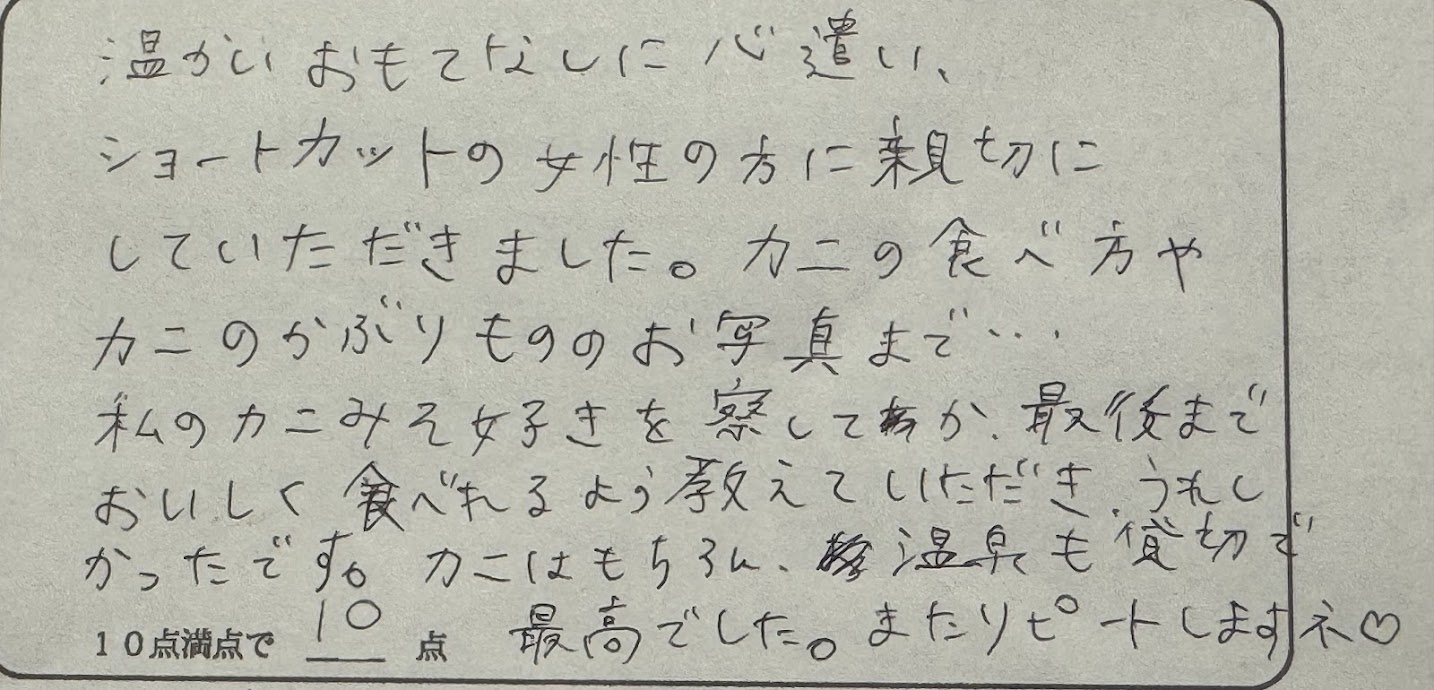 温かいおもてなしに心遣い、
ショートカットの女性の方に親切に
していただきました。カニの食べ方や
カニのかぶりもののお写真まで…
私のカニみそ好きを察してか、最後まで
おいしく食べれるよう教えていただき、うれし
かったです。カニはもちろん、温泉も貸切で
10点満点で 10 点 最高でした。またリピートしますネ♡